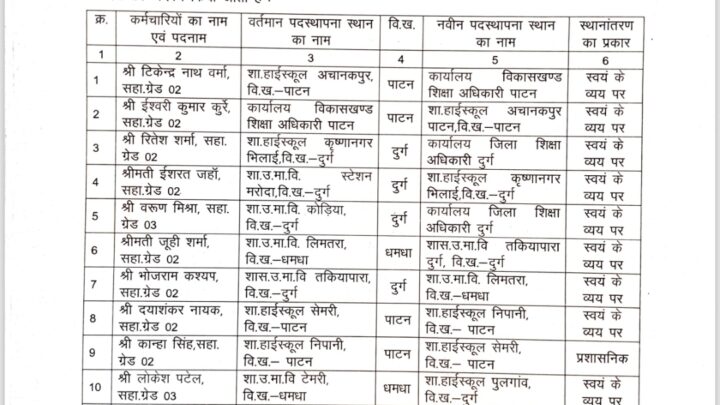 क्र. | कर्मचारियों का नाम एवं पदनाम | वर्तमान पदस्थापना स्थान का नाम | वि.ख. | नवीन पदस्थापना स्थान का नाम | स्थानांतरण का प्रकार
1 | 2 | 3 | 4 | 5 | 6
1 | श्री टिकेन्द्र नाथ वर्मा, सहा.ग्रेड 02 | शा.हाईस्कूल अचानकपुर, वि.ख.–पाटन | पाटन | कार्यालय विकासखण्ड शिक्षा अधिकारी पाटन | स्वयं के व्यय पर
2 | श्री ईश्वरी कुमार कुर्रे, सहा.ग्रेड 02 | कार्यालय विकासखण्ड शिक्षा अधिकारी पाटन | पाटन | शा.हाईस्कूल अचानकपुर पाटन,वि.ख.–पाटन | स्वयं के व्यय पर
3 | श्री रितेश शर्मा, सहा. ग्रेड 02 | शा.हाईस्कूल कृष्णानगर भिलाई,वि.ख.–दुर्ग | दुर्ग | कार्यालय जिला शिक्षा अधिकारी दुर्ग | स्वयं के व्यय पर
4 | श्रीमती ईशरत जहॉ, सहा.ग्रेड 02 | शा.उ.मा.वि. स्टेशन मरोदा,वि.ख.–दुर्ग | दुर्ग | शा.हाईस्कूल कृष्णानगर भिलाई,वि.ख.–दुर्ग | स्वयं के व्यय पर
5 | श्री वरूण मिश्रा, सहा. ग्रेड 03 | शा.उ.मा.वि. कोड़िया, वि.ख.–दुर्ग | दुर्ग | कार्यालय जिला शिक्षा अधिकारी दुर्ग | स्वयं के व्यय पर
6 | श्रीमती जूही शर्मा, सहा.ग्रेड 02 | शा.उ.मा.वि. लिमतरा, वि.ख.–धमधा | धमधा | शास.उ.मा.वि तकियापारा दुर्ग, वि.ख.–दुर्ग | स्वयं के व्यय पर
7 | श्री भोजराम कश्यप, सहा.ग्रेड 02 | शास.उ.मा.वि तकियापारा, वि.ख.–दुर्ग | दुर्ग | शा.उ.मा.वि. लिमतरा, वि.ख.–धमधा | स्वयं के व्यय पर
8 | श्री दयाशंकर नायक, सहा.ग्रेड 02 | शा.हाईस्कूल सेमरी, वि.ख.– पाटन | पाटन | शा.हाईस्कूल निपानी, वि.ख.– पाटन | स्वयं के व्यय पर
9 | श्री कान्हा सिंह,सहा. ग्रेड 02 | शा.हाईस्कूल निपानी, वि.ख.– पाटन | पाटन | शा.हाईस्कूल सेमरी, वि.ख.– पाटन | प्रशासनिक
10 | श्री लोकेश पटेल, सहा.ग्रेड 03 | शा.उ.मा.वि टेमरी, वि.ख.–धमधा | धमधा | शा.हाईस्कूल पुलगांव, वि.ख.–दुर्ग | स्वयं के व्यय पर